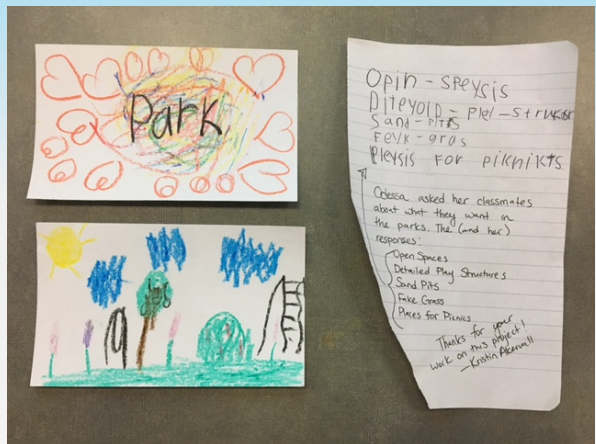 Park
Opin - speysis
Diteyold - plel - strukshr
Sand - pits
Feyk - gras
Pleysis for piknikts
Odessa asked her classmates
about what they want in
the parks. The (and her)
responses:
Open Spaces
Detailed Play Structures
Sand Pits
Fake Grass
Places for Picnics
Thanks for your
work on this project!
- Kristin